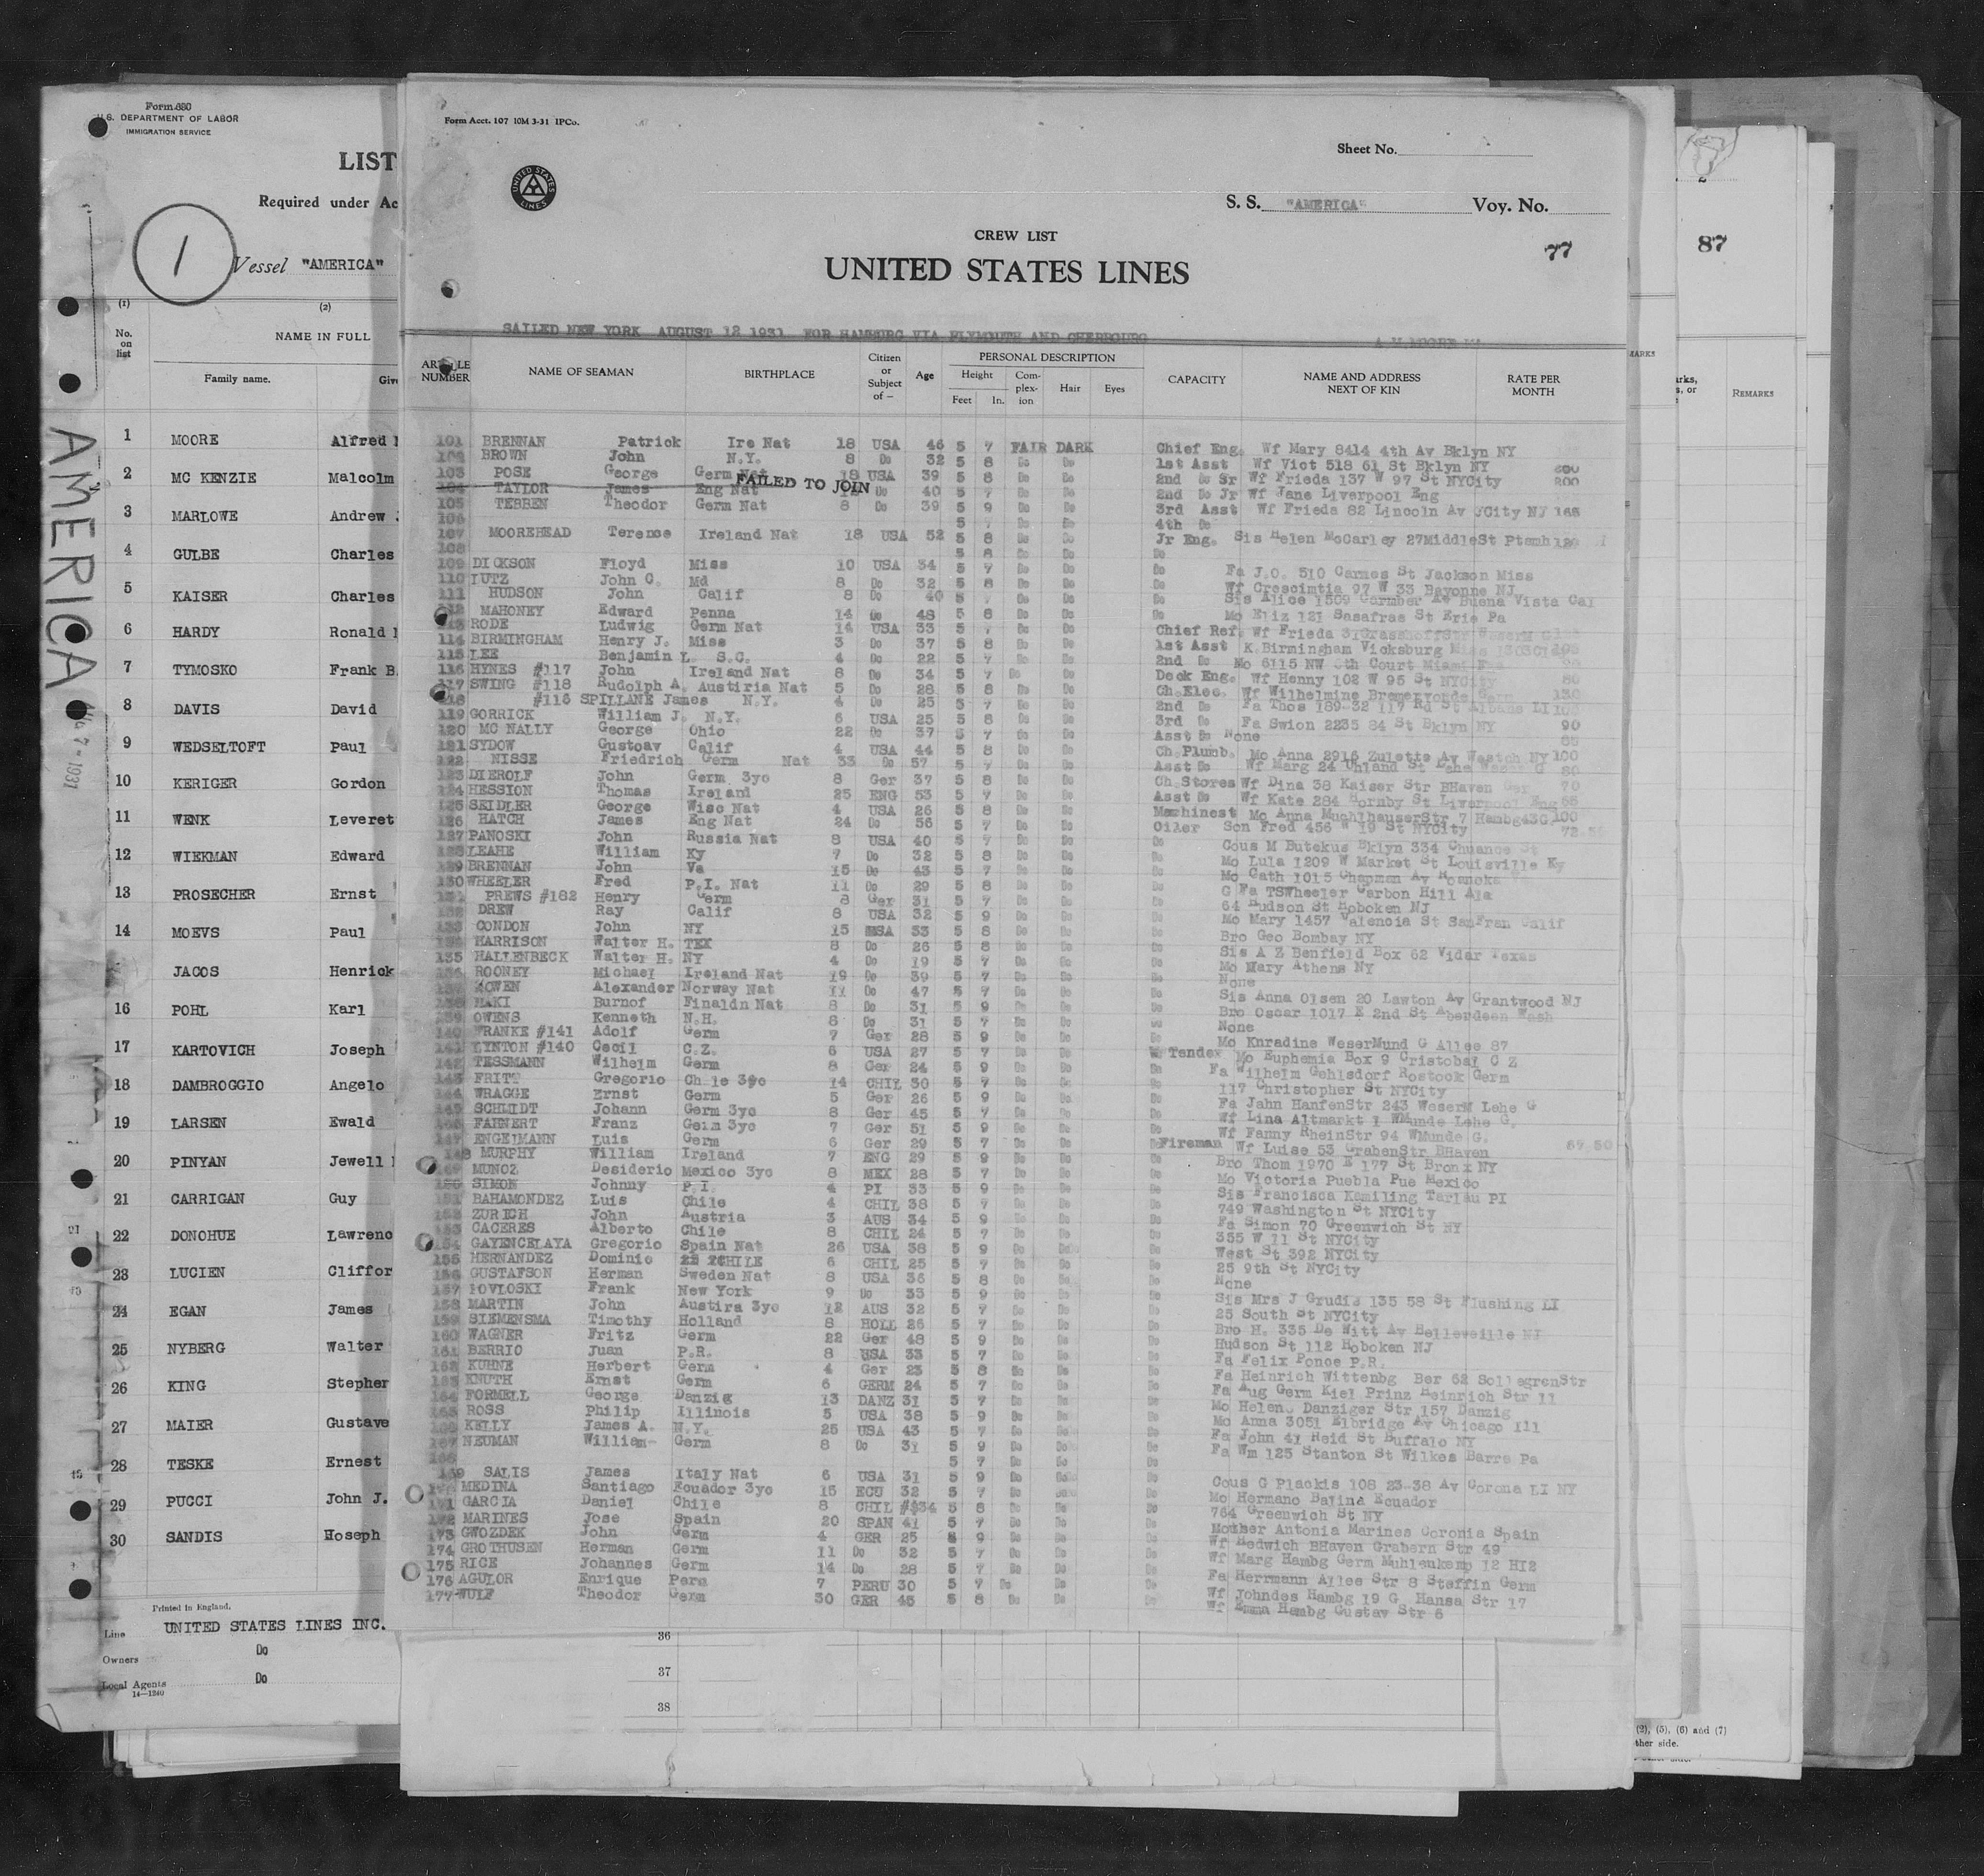 Form 680
U.S. DEPARTMENT OF LABOR
IMMIGRATION SERVICE
LIST
Required under Ac
1
Vessel "AMERICA"
(1) (2)
No. on list NAME IN FULL
Family name. Giv
1 MOORE Alfred
2 MC KENZIE Malcolm
3 MARLOWE Andrew
4 GULBE Charles
5 KAISER Charles
6 HARDY Ronald
7 TYMOSKO Frank B
8 DAVIS David
9 WEDSELTOFT Paul
10 KERIGER Gordon
11 WENK Leveret
12 WIEKMAN Edward
13 PROSECHER Ernst
14 MOEVS Paul
JACOS Henrick
16 POHL Karl
17 KARTOVICH Joseph
18 DAMBROGGIO Angelo
19 LARSEN Ewald
20 PINYAN Jewell
21 CARRIGAN Guy
22 DONOHUE Lawrenc
23 LUCIEN Cliffor
24 EGAN James
25 NYBERG Walter
26 KING Stepher
27 MAIER Gustave
28 TESKE Ernest
29 PUCCI John J.
30 SANDIS Hoseph
Printed in England.
Line UNITED STATES LINES INC.
Owners Do
Local Agents Do
14-1240
AMERICA
Form Acct. 107 10M 3-31 IPCo.
Sheet No.
UNITED STATES LINES
S. S. "AMERICA" Voy. No.
77
CREW LIST
UNITED STATES LINES
SAILED NEW YORK AUGUST 12 1931 FOR HAMBURG VIA PLYMOUTH AND CHERBOURG
ARTICLE NUMBER NAME OF SEAMAN BIRTHPLACE Citizen or Subject of – Age PERSONAL DESCRIPTION CAPACITY NAME AND ADDRESS NEXT OF KIN RATE PER MONTH
Height Com-plex-ion Hair Eyes
Feet In.
101 BRENNAN Patrick Ire Nat 18 USA 46 5 7 FAIR DARK Chief Eng. Wf Mary 8414 4th Av Bklyn NY
BROWN John N.Y. 8 Do 32 5 8 Do Do 1st Asst Wf Vict 518 61 St Bklyn NY
103 POSE George Germ Nat 18 USA 39 5 8 Do Do 2nd Do Sr Wf Frieda 137 W 97 St NYCity 200
104 TAYLOR James Eng Nat Do 40 5 7 Do Do 2nd Do Jr Wf Jane Liverpool Eng
FAILED TO JOIN
105 TEBBEN Theodor Germ Nat 8 Do 39 5 9 Do Do 3rd Asst Wf Frieda 82 Lincoln Av JCity NJ 165
106 5 7 Do Do 4th Do
107 MOOREHEAD Terense Ireland Nat 18 USA 52 5 8 Do Do Jr Eng. Sis Helen McCarley 27MiddleSt Ptsmh
108 5 8 Do Do Do
109 DICKSON Floyd Miss 10 USA 34 5 7 Do Do Do Fa J.O. 510 Carmes St Jackson Miss
110 LUTZ John C. Md 8 Do 32 5 8 Do Do Do Wf Crescimtia 97 W 33 Bayonne NJ
111 HUDSON John Calif 8 Do 40 5 7 Do Do Do Sis Alice 1509 Av Buena Vista Cal
MAHONEY Edward Penna 14 Do 48 5 8 Do Do Do Mo Eliz 121 Sasafras St Erie Pa
RODE Ludwig Germ Nat 14 USA 33 5 7 Do Do Chief Ref. Wf Frieda
114 BIRMINGHAM Henry J. Miss 3 Do 37 5 8 Do Do 1st Asst K.Birmingham Vicksburg
115 LEE Benjamin L. S.C. 4 Do 22 5 7 Do Do 2nd Do Mo 6115 NW 6th Court Miami
116 HYNES #117 John Ireland Nat 8 Do 34 5 7 Do Do Deck Eng. Wf Henny 102 W 95 St NYCity 80
117 SWING #118 Rudolph A. Austiria Nat 5 Do 28 5 8 Do Do Ch.Elec. Wf Wilhelmine 130
#116 SPILLANE James N.Y. 4 Do 25 5 7 Do Do 2nd Do Fa Thos 189-32 117 Rd St Albans LI
119 GORRICK William J. N.Y. 6 USA 25 5 8 Do Do 3rd Do Fa Swion 2235 84 St Bklyn NY 90
120 MC NALLY George Ohio 22 Do 37 5 7 Do Do Asst Do None
121 SYDOW Gustoav Calif 4 USA 44 5 8 Do Do Ch Plumb. Mo Anna 2916 Zulette Av Westch NY 100
122 NISSE Friedrich Germ Nat 33 Do 57 5 7 Do Do Asst Do Wf Marg 24 Uhland St 80
123 DIEROLF John Germ 3yo 8 Ger 37 5 8 Do Do Ch Stores Wf Dina 38 Kaiser Str BHaven Ger 70
124 HESSION Thomas Ireland 25 ENG 53 5 7 Do Do Asst Do Wf Kate 284 Hornby St Liverpool Eng
125 SEIDLER George Wisc Nat 4 USA 26 5 8 Do Do Machinest Mo Anna MuchlhauserStr 7 Hambg43G 100
126 HATCH James Eng Nat 24 Do 56 5 7 Do Do Oiler Son Fred 456 W 19 St NYCity
127 PANOSKI John Russia Nat 8 USA 40 5 7 Do Do Do Cous M Butekus Bklyn 334
128 LEAHE William Ky 7 Do 32 5 8 Do Do Do Mo Lula 1209 W Market St Louisville Ky
129 BRENNAN John Va 15 Do 43 5 7 Do Do Do Mo Cath 1015 Chapman Av Roanoke
130 WHEELER Fred P.I. Nat 11 Do 29 5 8 Do Do Do G Fa TSWheeler Carbon Hill Ala
PREWS #182 Henry Germ 8 Ger 31 5 7 Do Do Do 64 Hudson St Hoboken NJ
DREW Ray Calif 8 USA 32 5 9 Do Do Do Mo Mary 1457 Valencia St SanFran Calif
133 CONDON John NY 15 USA 33 5 8 Do Do Do Bro Geo Bombay NY
HARRISON Walter H. TEX 8 Do 26 5 8 Do Do Do Sis A Z Benfield Box 62 Vidar Texas
135 HALLENBECK Walter H. NY 4 Do 19 5 7 Do Do Do Mo Mary Athens NY
136 ROONEY Michael Ireland Nat 19 Do 39 5 7 Do Do Do None
Alexander Norway Nat 11 Do 47 5 7 Do Do Do Sis Anna Olsen 20 Lawton Av Grantwood NJ
HAKI Burnof Finaldn Nat 8 Do 31 5 9 Do Do Do Bro Oscar 1017 E 2nd St Aberdeen Wash
139 OWENS Kenneth N.H. 8 Do 31 5 7 Do Do Do None
140 #141 Adolf Germ 7 Ger 28 5 9 Do Do Do Mo Knradine WeserMund G Allee 87
141 LYNTON #140 Cecil C.Z. 6 USA 27 5 7 Do Do W Tender Mo Euphemia Box 9 Cristobal C Z
142 TESSMANN Wilhelm Germ 8 Ger 24 5 9 Do Do Do Fa Wilhelm Gehlsdorf Rostock Germ
143 FRITZ Gregorio Chile 3yo 14 CHIL 30 5 7 Do Do Do 117 Christopher St NYCity
144 WRAGGE Ernst Germ 5 Ger 26 5 9 Do Do Do Fa Jahn HanfenStr 243 WeserM Lehe G
145 SCHLIDT Johann Germ 3yo 8 Ger 45 5 7 Do Do Do Wf Lina Altmarkt 1 WMunde Lehe G.
146 FAHNERT Franz Germ 3yo 7 Ger 51 5 9 Do Do Do Wf Fanny RheinStr 94 WMunde G.
147 ENGELMANN Luis Germ 6 Ger 29 5 7 Do Do Fireman Wf Luise 53 GrabenStr BHaven 67.50
148 MURPHY William Ireland 7 ENG 29 5 9 Do Do Do Bro Thom 1970 E 177 St Bronx NY
149 MUNOZ Desiderio Mexico 3yo 8 MEX 28 5 7 Do Do Do Mo Victoria Puebla Pue Mexico
150 SIMON Johnny P.I. 4 PI 33 5 9 Do Do Do Sis Francisca Kamiling Tarlau PI
151 BAHAMONDEZ Luis Chile 4 CHIL 38 5 7 Do Do Do 749 Washington St NYCity
152 ZURICH John Austria 3 AUS 34 5 9 Do Do Do Fa Simon 70 Greenwich St NY
153 CACERES Alberto Chile 8 CHIL 24 5 7 Do Do Do 355 W 11 St NYCity
154 GAYENCELAYA Gregorio Spain Nat 26 USA 38 5 9 Do Do Do West St 392 NYCity
155 HERNANDEZ Dominic CHILE 6 CHIL 25 5 7 Do Do Do 25 9th St NYCity
156 GUSTAFSON Herman Sweden Nat 8 USA 36 5 8 Do Do Do None
157 Frank New York 9 Do 33 5 9 Do Do Do Sis Mrs J Grudis 135 58 St Flushing LI
158 MARTIN John Austira 3yo 12 AUS 32 5 7 Do Do Do 25 South St NYCity
159 SIEMENSMA Timothy Holland 8 HOLL 26 5 7 Do Do Do Bro H. 335 De Witt Av Belleveille NJ
160 WAGNER Fritz Germ 22 Ger 48 5 9 Do Do Do Hudson St 112 Hoboken NJ
161 BERRIO Juan P.R. 8 USA 33 5 7 Do Do Do Fa Felix Ponce P.R.
162 KUHNE Herbert Germ 4 Ger 23 5 8 Do Do Do Fa Heinrich Wittenbg Ber 62 SollegrenStr
163 KNUTH Ernst Germ 6 GERM 24 5 7 Do Do Do Fa Aug Germ Kiel Prinz Heinrich Str 11
164 FORMELL George Danzig 13 DANZ 31 5 7 Do Do Do Mo Helene Danziger Str 157 Danzig
165 ROSS Philip Illinois 5 USA 38 5 9 Do Do Do Mo Anna 3051 Elbridge Av Chicago Ill
166 KELLY James A. N.Y. 25 USA 43 5 7 Do Do Do Fa John 41 Reid St Buffalo NY
167 NEUMAN William Germ 8 Do 31 5 9 Do Do Do Fa Wm 125 Stanton St Wilkes Barre Pa
168 5 7 Do Do Do
169 SALIS James Italy Nat 6 USA 31 5 9 Do Do Do Cous G Plackis 108 23-38 Av Corona LI NY
MEDINA Santiago Ecuador 3yo 15 ECU 32 5 7 Do Do Do Mo Hermano Balina Ecuador
171 GARCIA Daniel Chile 8 CHIL 34 5 8 Do Do Do 764 Greenwich St NY
172 MARINES Jose Spain 20 SPAN 41 5 7 Do Do Do Mother Antonia Marines Coronia Spain
173 GWOZDEK John Germ 4 GER 25 5 9 Do Do Do Wf Hedwich BHaven Grabern Str 49
174 GROTHUSEN Herman Germ 11 Do 32 5 7 Do Do Do Wf Marg Hambg Germ Muhlenkamp 12 HI2
175 RICE Johannes Germ 14 Do 28 5 7 Do Do Do Fa Herrmann Allee Str 8 Steffin Germ
176 AGULOR Enrique Peru 7 PERU 30 5 7 Do Do Do Wf Johndes Hambg 19 G Hansa Str 17
177 WULF Theodor Germ 30 GER 45 5 8 Do Do Do Wf Emma Hambg Gustav Str 6
36
37
38
87
REMARKS
(2), (5), (6) and (7)
ther side.